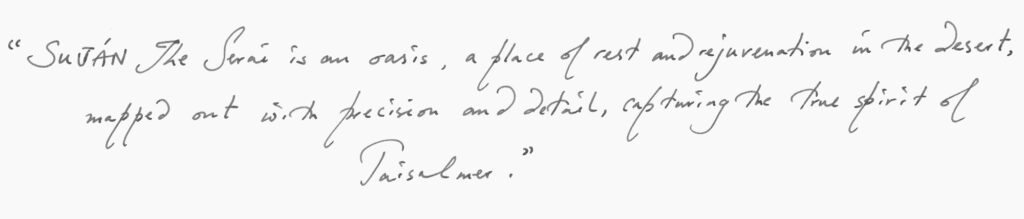 “SUJÁN The Serai is an oasis, a place of rest and rejuvenation in the desert,
mapped out with precision and detail, capturing the true spirit of
Jaisalmer.”